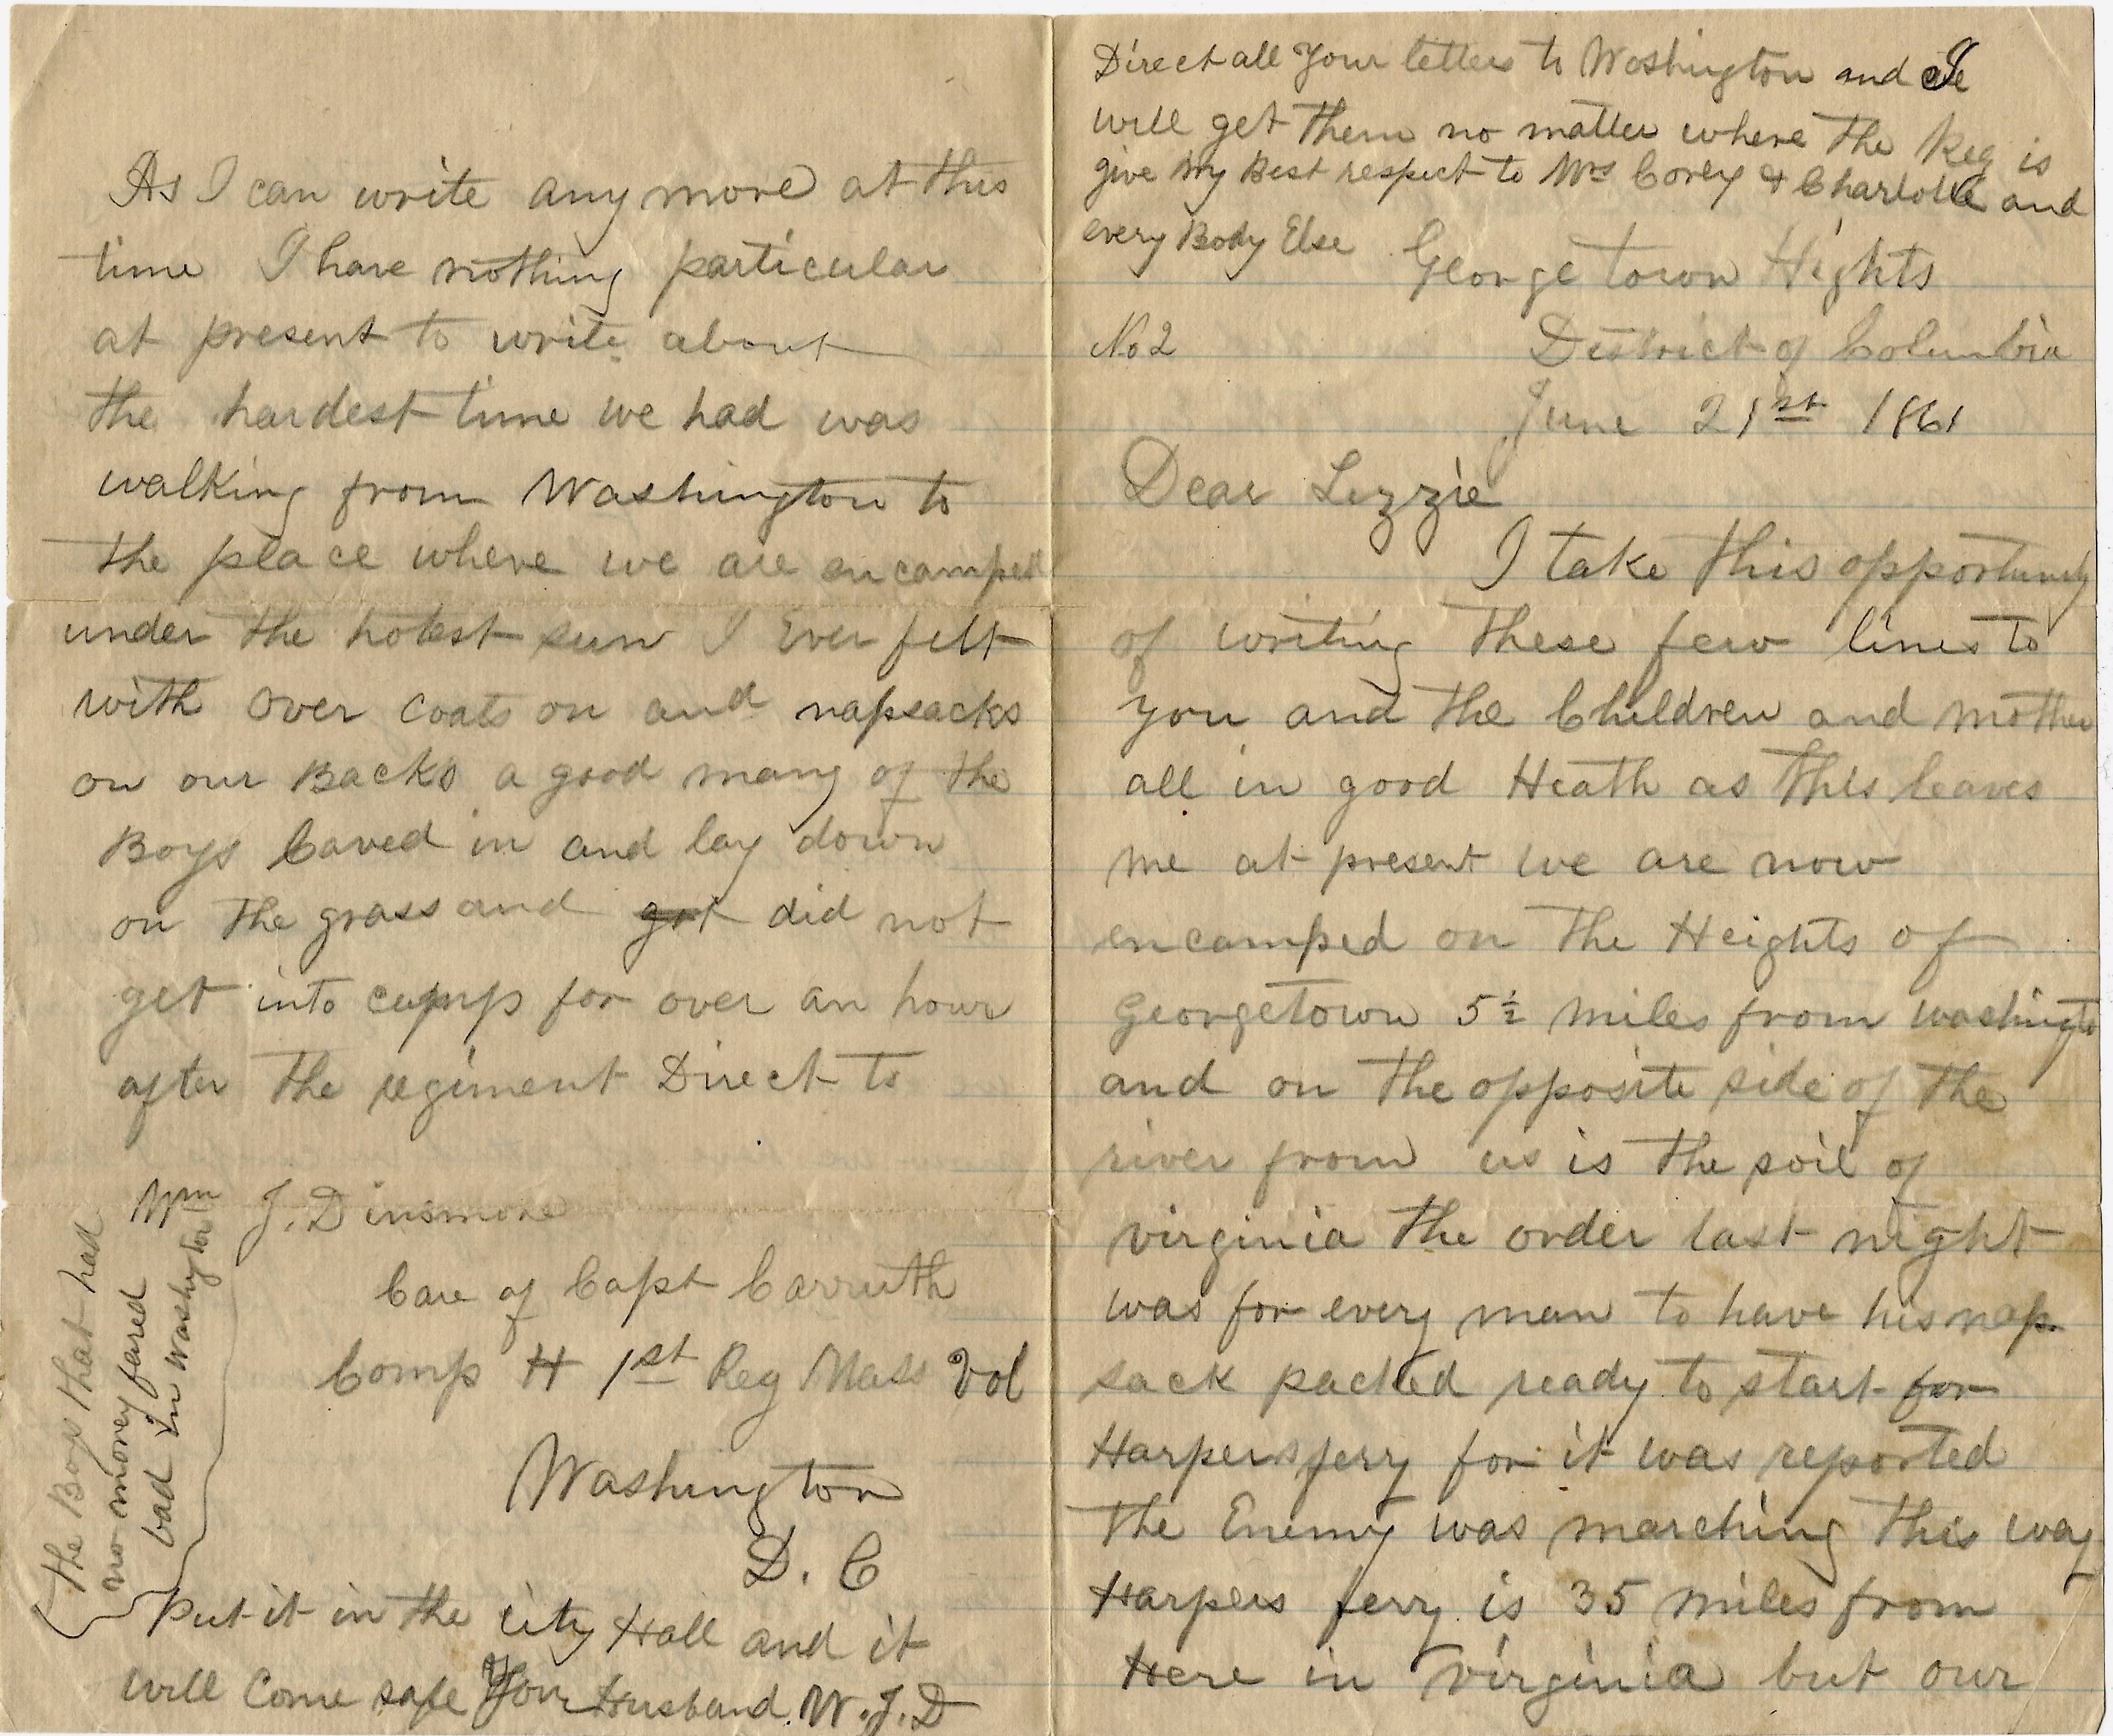 As I can write any more at this
time I have nothing particular
at present to write about
the hardest time we had was
walking from Washington to
the place where we are encamped
under the hotest sun I Ever felt
with over coats on and napsacks
on our Backs a good many of the
Boys Caved in and lay down
on the grass and got did not
get into camp for over an hour
after the regiment Direct to
Wm J. Dinsmore
Care of Capt Carruth
Comp H 1st Reg Mass Vol
Washington
D. C
the Boys that had
no money fared
bad in Washington
Put it in the city Hall and it
will Come safe Your Husband. W. J. D
Direct all Your letters to Washington and I
will get them no matter where the Reg is
give My Best respect to Mrs Corey & Charlotte and
every Body Else
George town Hights
No 2
District of Columbia
June 21st 1861
Dear Lizzie
I take this opportunity
of writing these few lines to
you and the Children and mother
all in good Heath as this leaves
me at present we are now
encamped on the Heights of
Georgetown 5½ miles from washington
and on the opposite side of the
river from us is the soil of
virginia the order last night
was for every man to have his nap
sack packed ready to start for
Harpers ferry for it was reported
the Enemy was marching this way
Harpers ferry is 35 miles from
Here in virginia but our